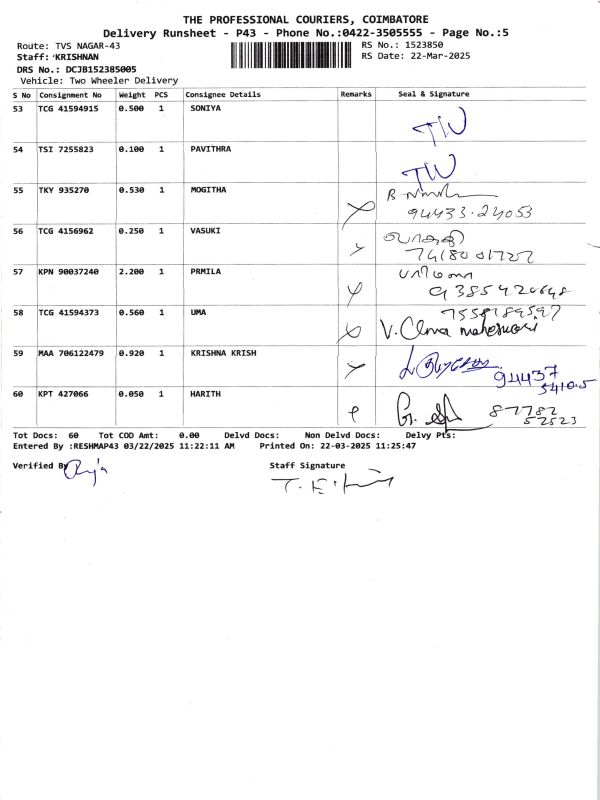 THE PROFESSIONAL COURIERS, COIMBATORE
Delivery Runsheet - P43 - Phone No.:0422-3505555 - Page No.:5
Route: TVS NAGAR-43 RS No.: 1523850
Staff: 'KRISHNAN RS Date: 22-Mar-2025
DRS No.: DCJB152385005
Vehicle: Two Wheeler Delivery
S No Consignment No Weight PCS Consignee Details Remarks Seal & Signature
53 TCG 41594915 0.500 1 SONIYA
54 TSI 7255823 0.100 1 PAVITHRA
55 TKY 935270 0.530 1 MOGITHA
94433.24053
56 TCG 4156962 0.250 1 VASUKI
57 KPN 90037240 2.200 1 PRMILA
58 TCG 41594373 0.560 1 UMA
V. Uma maheswari
59 MAA 706122479 0.920 1 KRISHNA KRISH
94437
54105
60 KPT 427066 0.050 1 HARITH
87782
52523
Tot Docs: 60 Tot COD Amt: 0.00 Delvd Docs: Non Delvd Docs: Delvy Pts:
Entered By :RESHMAP43 03/22/2025 11:22:11 AM Printed On: 22-03-2025 11:25:47
Verified By Staff Signature